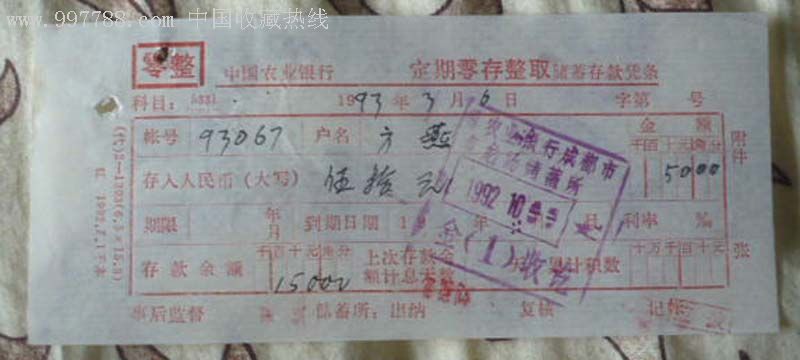 www.997788.com 中国收藏热线
零整 中国农业银行 定期零存整取储蓄存款凭条
科目: 5331 1993年3月6日 字第 号
帐号 93067 户名 方燕 金额
千百十元角分 附件
存入人民币(大写) 伍拾元 5000
行成都市
储蓄所
1992 10
期限 年月 到期日期 1 年 日 利率 ‰
(1) 收讫
存款余额 千百十元角分 15000 上次存款金额计息天数 累计积数 十万千百十元 张
事后监督 储蓄所: 出纳 复核 记帐